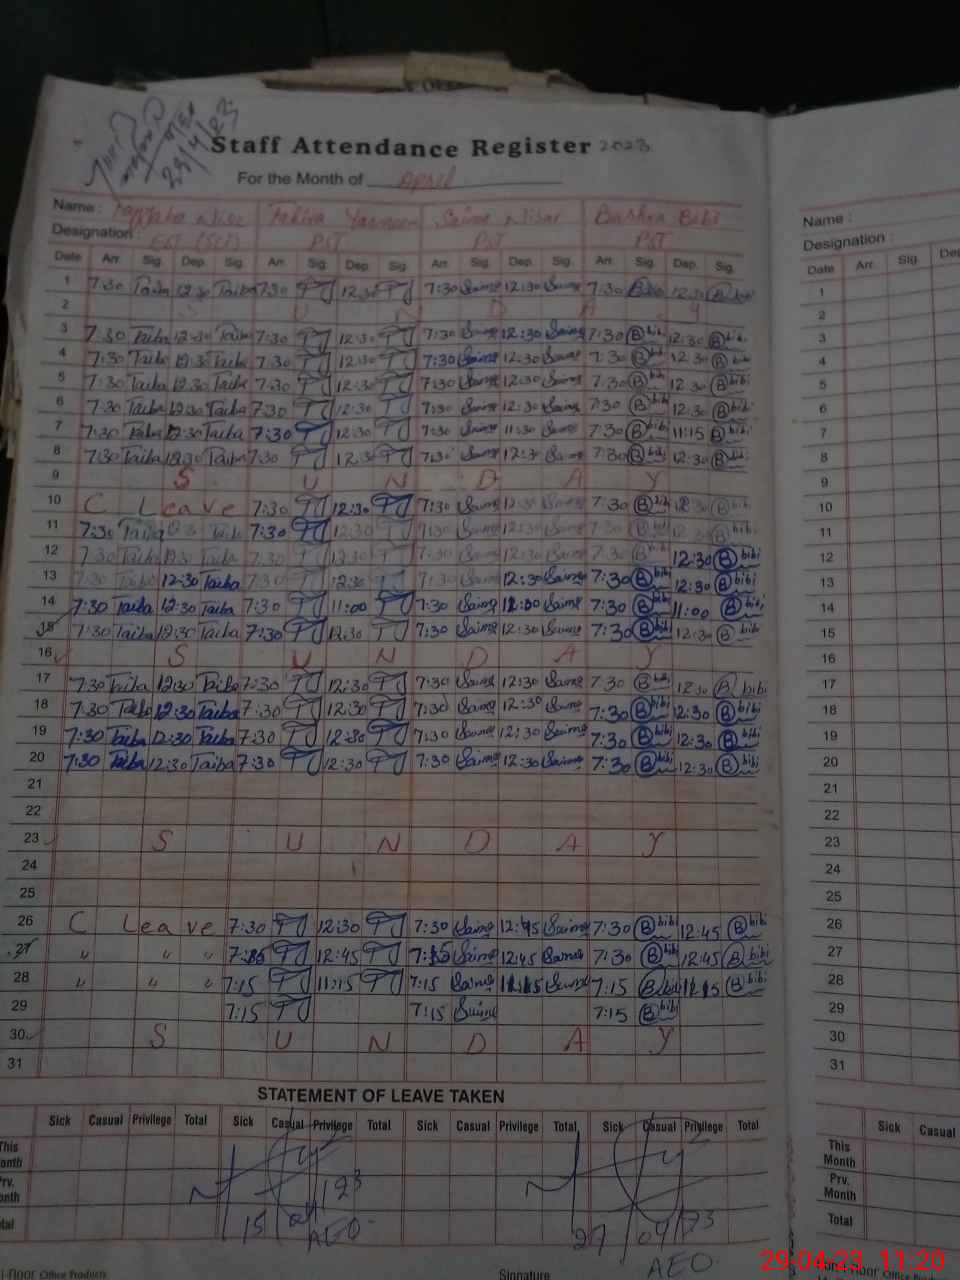 23/4/23
Staff Attendance Register 2023
For the Month of April
Name : Nisar Tahira Yasmeen Saima Nisar Bushra Bibi Name :
Designation : EST (Sci) PST PST PST Designation :
Date Arr. Sig. Dep. Sig. Arr. Sig. Dep. Sig. Arr. Sig. Dep. Sig. Arr. Sig. Dep. Sig. Date Arr. Sig.
1 7:30 Taiba 12:30 Taiba 7:30 TJ 12:30 TJ 7:30 Saima 12:30 Saima 7:30 B bibi 12:30 B bibi 1
2 S U N D A Y 2
3 7:30 Taiba 12:30 Taiba 7:30 TJ 12:30 TJ 7:30 Saima 12:30 Saima 7:30 B bibi 12:30 B bibi 3
4 7:30 Taiba 12:30 Taiba 7:30 TJ 12:30 TJ 7:30 Saima 12:30 Saima 7:30 B bibi 12:30 B bibi 4
5 7:30 Taiba 12:30 Taiba 7:30 TJ 12:30 TJ 7:30 Saima 12:30 Saima 7:30 B bibi 12:30 B bibi 5
6 7:30 Taiba 12:30 Taiba 7:30 TJ 12:30 TJ 7:30 Saima 12:30 Saima 7:30 B bibi 12:30 B bibi 6
7 7:30 Taiba 12:30 Taiba 7:30 TJ 12:30 TJ 7:30 Saima 11:30 Saima 7:30 B bibi 11:15 B bibi 7
8 7:30 Taiba 12:30 Taiba 7:30 TJ 12:30 TJ 7:30 Saima 12:30 Saima 7:30 B bibi 12:30 B bibi 8
9 S U N D A Y 9
10 C Leave 7:30 TJ 12:30 TJ 7:30 Saima 12:30 Saima 7:30 B bibi 12:30 B bibi 10
11 7:30 Taiba 12:30 Taiba 7:30 TJ 12:30 TJ 7:30 Saima 12:30 Saima 7:30 B bibi 12:30 B bibi 11
12 7:30 Taiba 12:30 Taiba 7:30 TJ 12:30 TJ 7:30 Saima 12:30 Saima 7:30 B bibi 12:30 B bibi 12
13 7:30 Taiba 12:30 Taiba 7:30 TJ 12:30 TJ 7:30 Saima 12:30 Saima 7:30 B bibi 12:30 B bibi 13
14 7:30 Taiba 12:30 Taiba 7:30 TJ 11:00 TJ 7:30 Saima Saima 7:30 B bibi 11:00 B bibi 14
15 7:30 Taiba 12:30 Taiba 7:30 TJ 12:30 TJ 7:30 Saima 12:30 Saima 7:30 B bibi 12:30 B bibi 15
16 S U N D A Y 16
17 7:30 Taiba 12:30 Taiba 7:30 TJ 12:30 TJ 7:30 Saima 12:30 Saima 7:30 B bibi 12:30 B bibi 17
18 7:30 Taiba 12:30 Taiba 7:30 TJ 12:30 TJ 7:30 Saima 12:30 Saima 7:30 B bibi 12:30 B bibi 18
19 7:30 Taiba 12:30 Taiba 7:30 TJ 12:30 TJ 7:30 Saima 12:30 Saima 7:30 B bibi 12:30 B bibi 19
20 7:30 Taiba 12:30 Taiba 7:30 TJ 12:30 TJ 7:30 Saima 12:30 Saima 7:30 B bibi 12:30 B bibi 20
21 21
22 22
23 S U N D A Y 23
24 24
25 25
26 C Leave 7:30 TJ 12:30 TJ 7:30 Saima 12:45 Saima 7:30 B bibi 12:45 B bibi 26
27 " " " TJ 12:45 TJ Saima 12:45 Saima 7:30 B bibi 12:45 B bibi 27
28 " " " 7:15 TJ 11:15 TJ 7:15 Saima Saima 7:15 B bibi B bibi 28
29 7:15 TJ 7:15 Saima 7:15 B bibi 29
30 S U N D A Y 30
31 31
STATEMENT OF LEAVE TAKEN
Sick Casual Privilege Total Sick Casual Privilege Total Sick Casual Privilege Total Sick Casual Privilege Total Sick Casual
This Month This Month
Prv. Month Prv. Month
Total Total
15/04/23 27/04/23
AEO AEO
Signature
Office Products
29-04-23 11:20